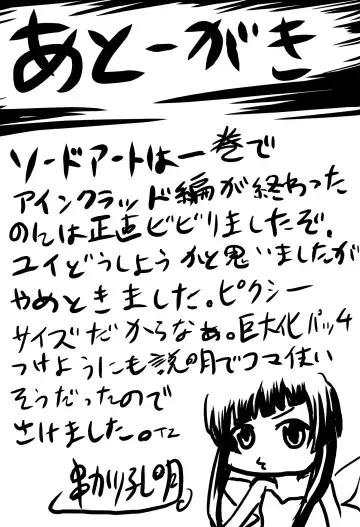 あとーがき
ソードアートは一巻で
アインクラッド編が終わった
のには正直ビビりましたぞ。
ユイどうしようかと思いましたが
やめときました。ピクシー
サイズだからなぁ。巨大化パッチ
つけようにも説明でコマ使い
そうだったので
さけました。
串カツ孔明